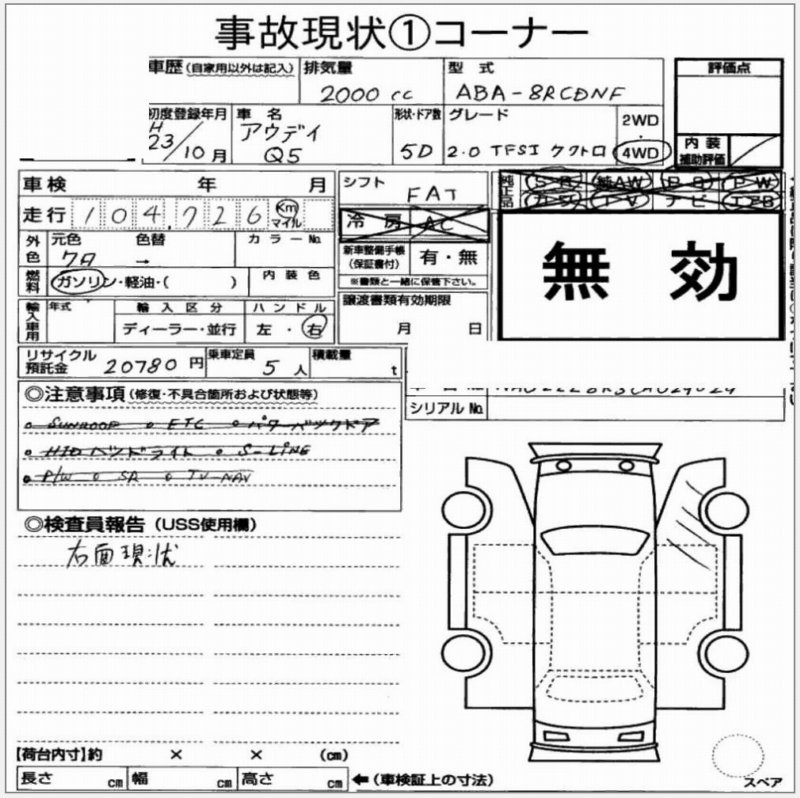 事故現状①コーナー
車歴 (自家用以外は記入) 排気量 型式 評価点
2000 cc ABA-8RCDNF
初度登録年月 車名 形状・ドア数 グレード 2WD
H23/10月 アウディ Q5 5D 2.0 TFSI クワトロ 4WD
内装補助評価
車検 年 月 シフト FAT 純正品 SR 純AW PS PW
走行 104,726 Km マイル 冷房 AC カワ TV ナビ エアB
外色 元色 色替 カラーNo. 新車整備手帳(保証書付) 有・無
クロ →
※書類と一緒に保管下さい。
無効
燃料 ガソリン・軽油・( ) 内装色
輸入車用 年式 輸入区分 ハンドル 譲渡書類有効期限
ディーラー・並行 左・右 月 日
リサイクル預託金 20780 円 乗車定員 5 人 積載量 t
◎注意事項 (修復・不具合箇所および状態等)
シリアルNo.
○ SUNROOF ○ ETC ○ パワーバックドア
○ HIDヘッドライト ○ S-LINE
○ P/W ○ SR ○ TV-NAV
◎検査員報告 (USS使用欄)
右面現状
【荷台内寸】約 × × (cm)
長さ cm 幅 cm 高さ cm ←(車検証上の寸法)
スペア